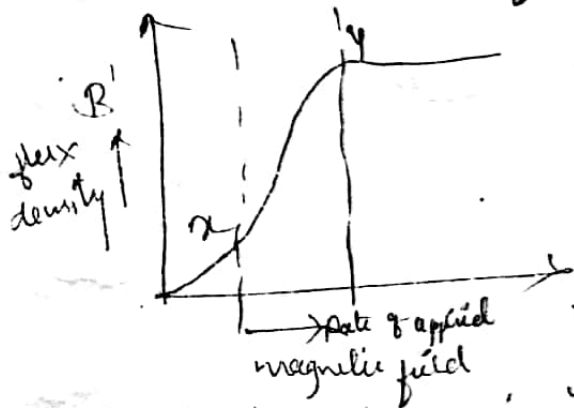 y
B
flux
density
x
Rate of applied
magnetic field